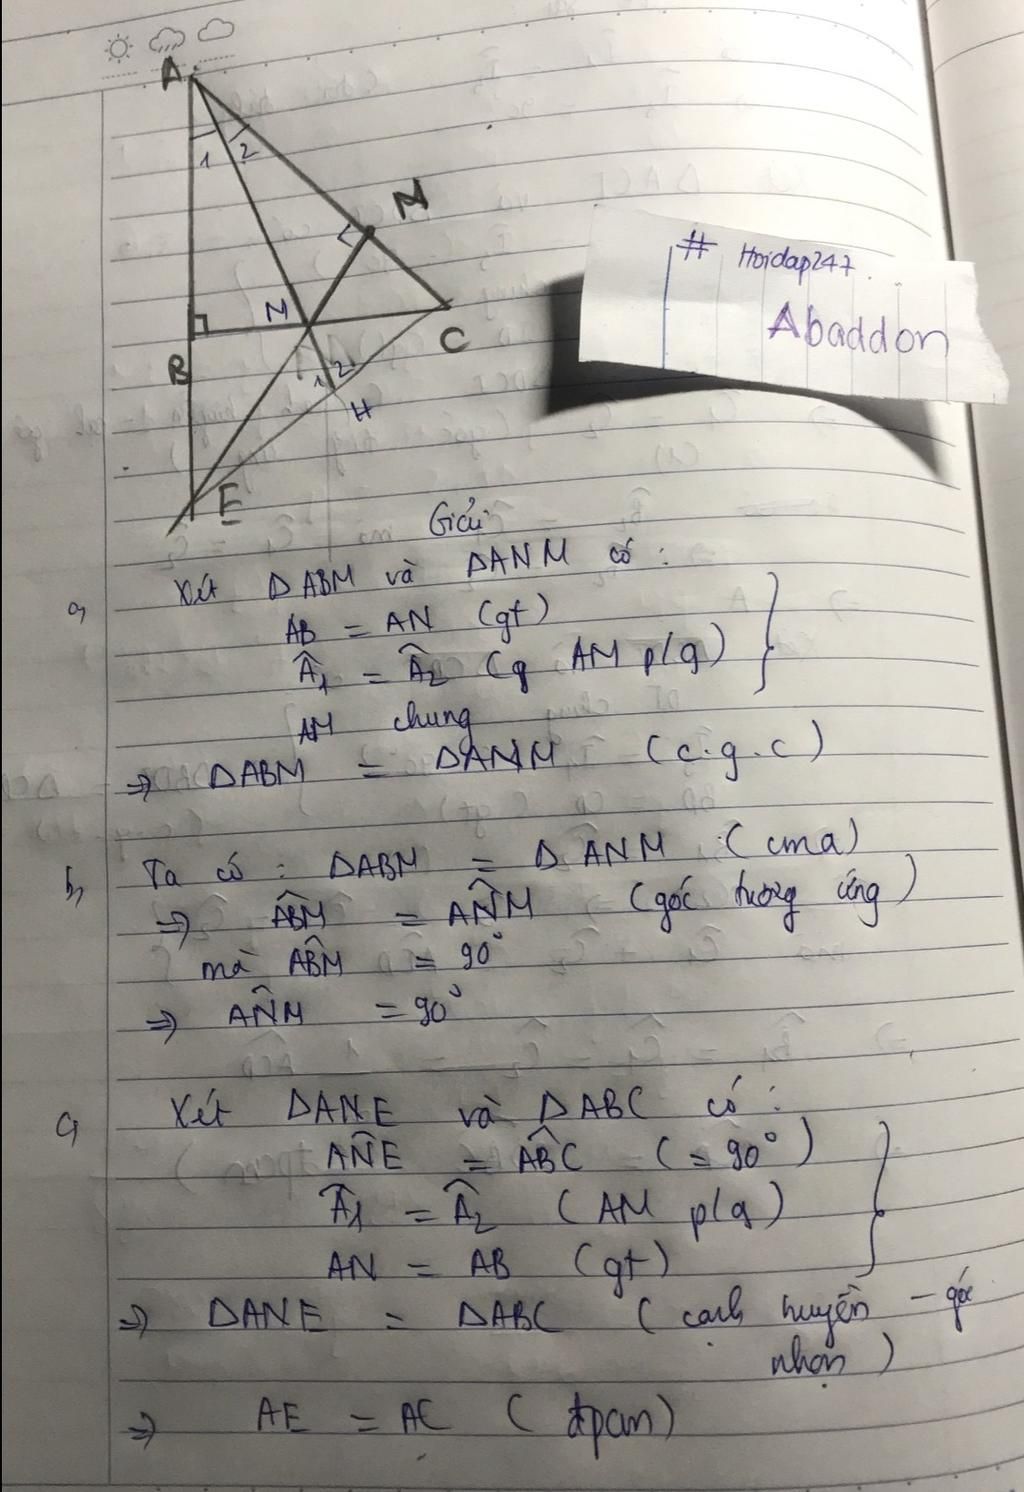 A
1 2
N
M
B
C
1 2
H
E
# Hoidap247
Abaddon
Giải
a, Xét ΔABM và ΔANM có :
AB = AN (gt)
Â1 = Â2 (q AM p/g)
AM chung
⇒ ΔABM = ΔANM (c.g.c)
b, Ta có : ΔABM = ΔANM (cma)
⇒ AB̂M = AN̂M (góc tương ứng)
mà AB̂M = 90°
⇒ AN̂M = 90°
c, Xét ΔANE và ΔABC có :
AN̂E = AB̂C (= 90°)
Â1 = Â2 (AM p/g)
AN = AB (gt)
⇒ ΔANE = ΔABC (cạnh huyền - góc
nhọn)
⇒ AE = AC (đpcm)